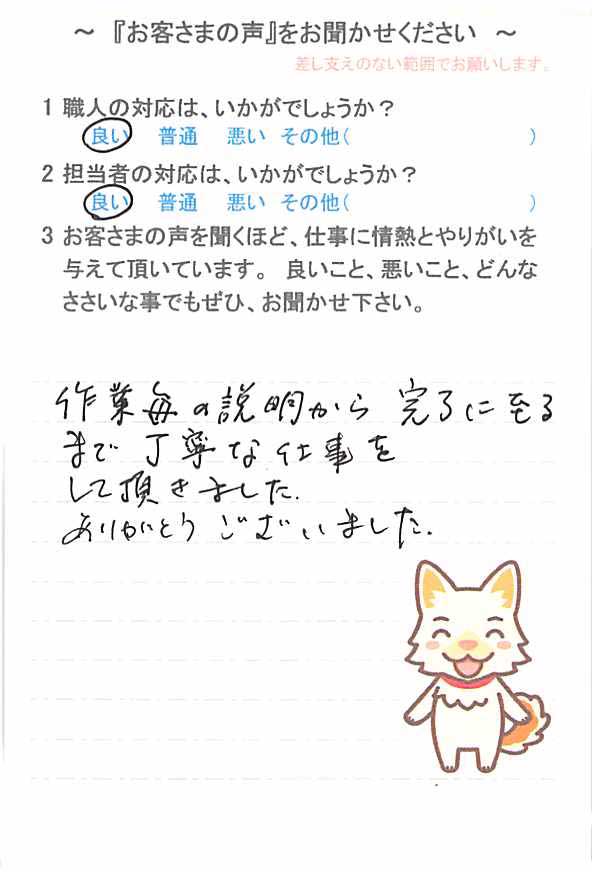 ～ 『お客さまの声』をお聞かせください ～
差し支えのない範囲でお願いします。
1 職人の対応は、いかがでしょうか？
良い 普通 悪い その他( )
2 担当者の対応は、いかがでしょうか？
良い 普通 悪い その他( )
3 お客さまの声を聞くほど、仕事に情熱とやりがいを
与えて頂いています。 良いこと、悪いこと、どんな
ささいな事でもぜひ、お聞かせ下さい。
作業毎の説明から 完了に至る
まで 丁寧な仕事を
して頂きました.
ありがとうございました.